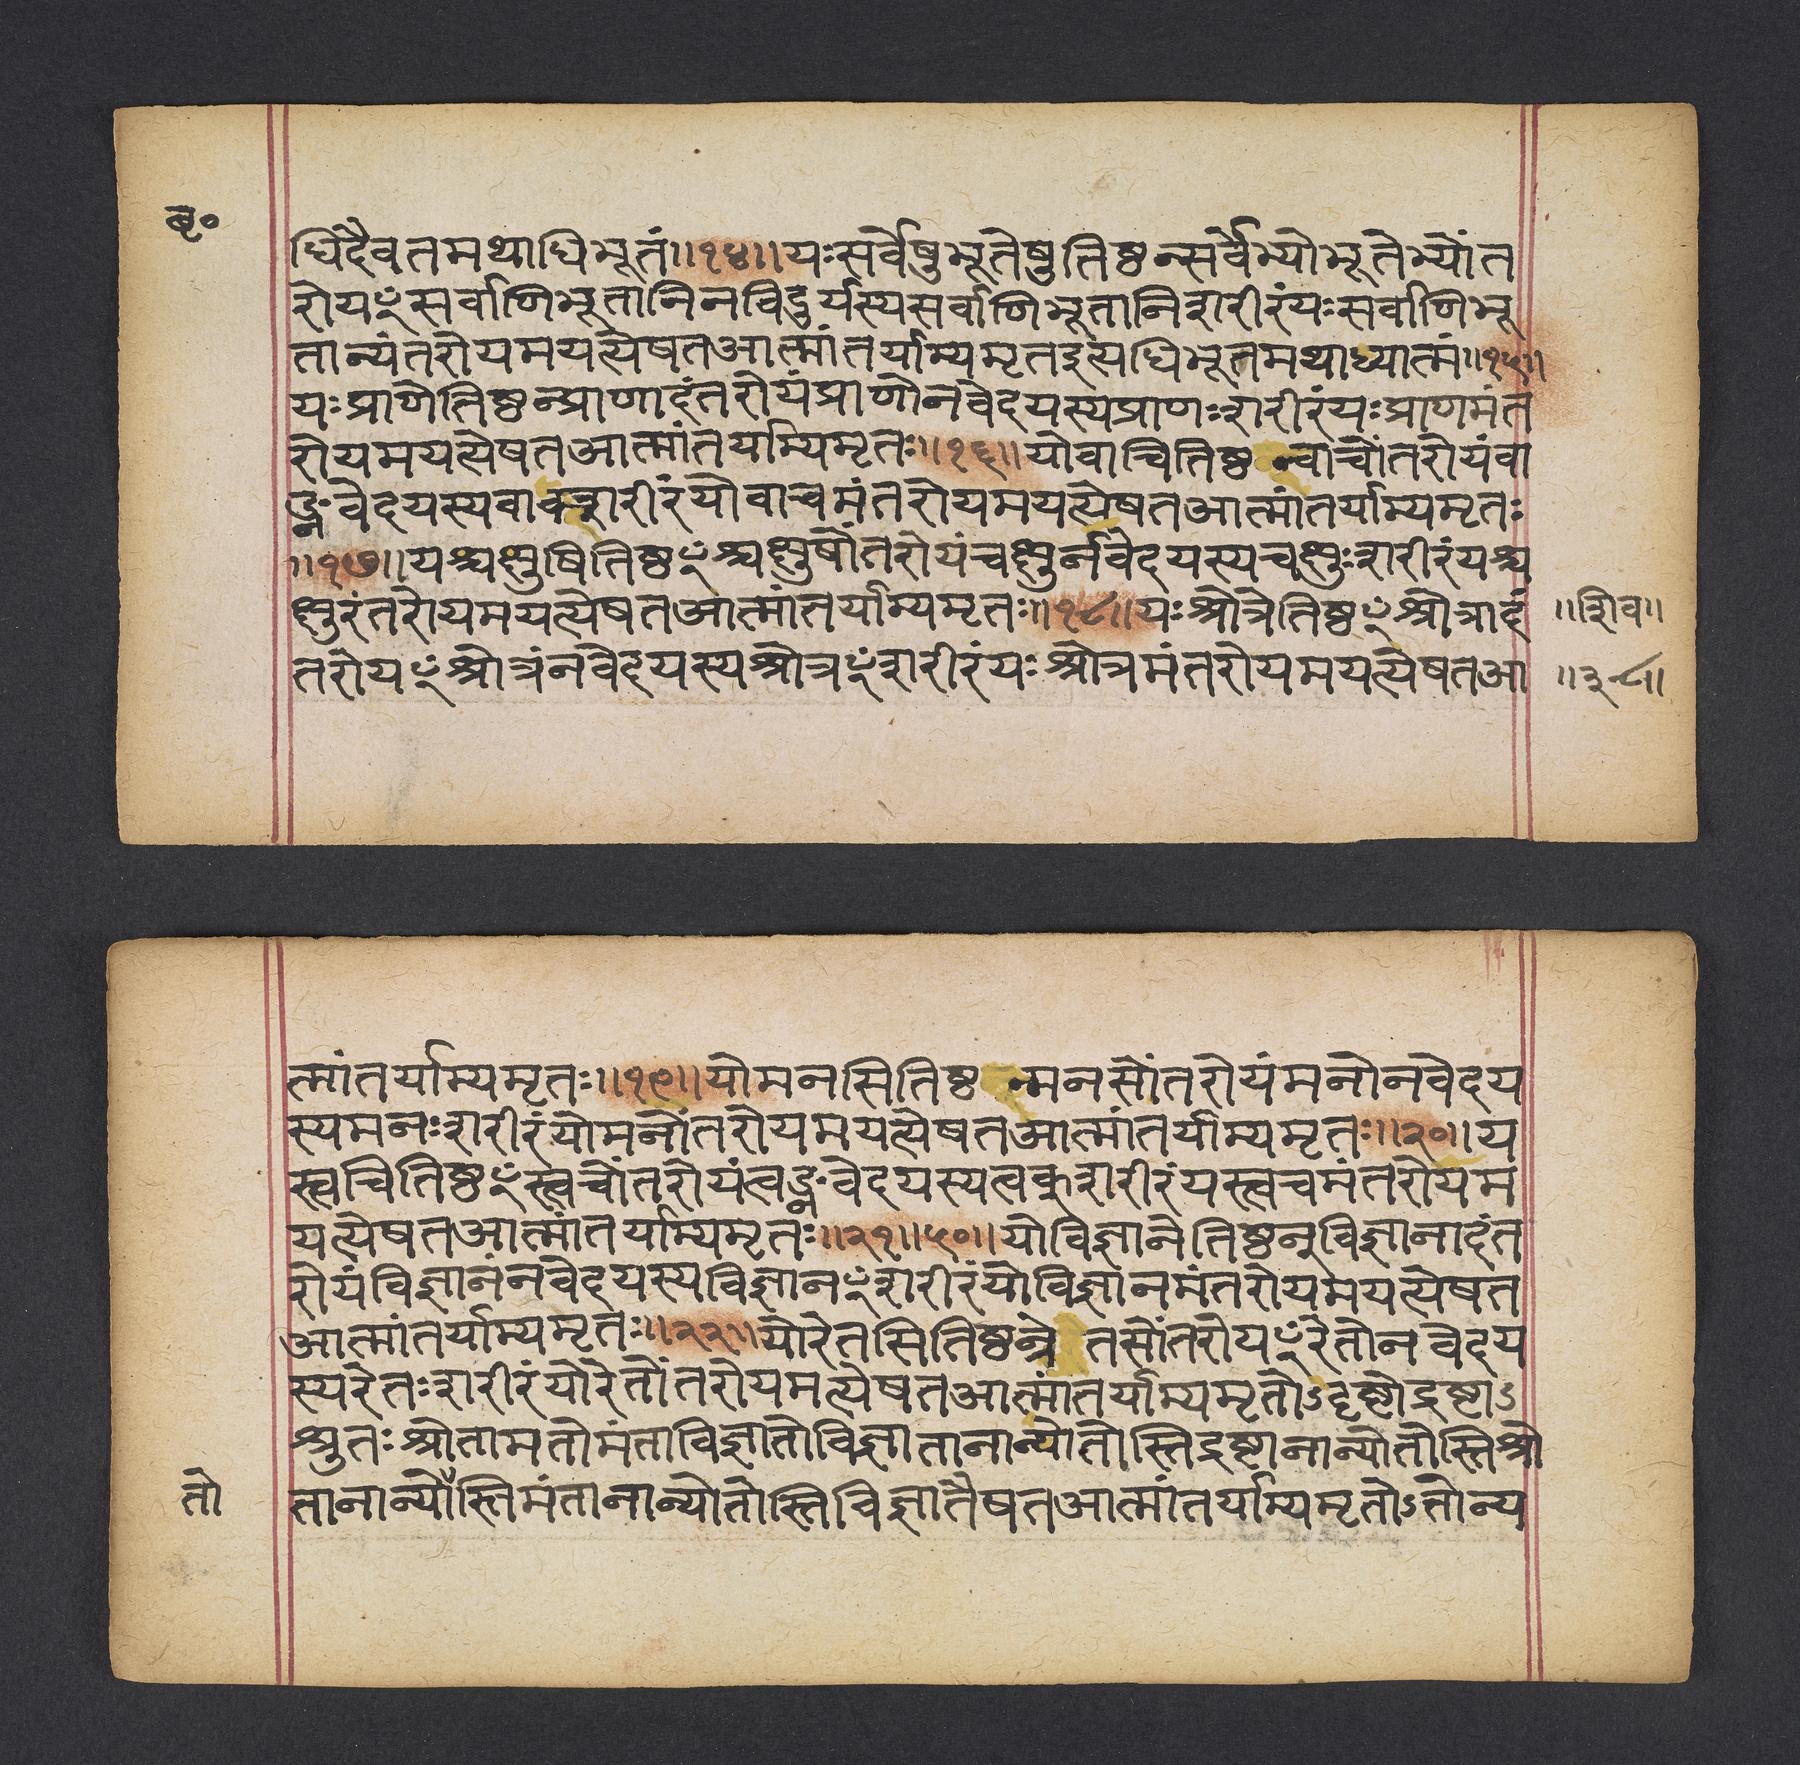 बृ०
धिदैवतमथाधिभूतं॥१४॥यःसर्वेषुभूतेषुतिष्ठन्सर्वेभ्योभूतेभ्योंत
रोयꣳसर्वाणिभूतानिनविदुर्यस्यसर्वाणिभूतानिशरीरंयःसर्वाणिभू
तान्यंतरोयमयत्येषतआत्मांतर्याम्यमृतइत्यधिभूतमथाध्यात्मं॥१५॥
यःप्राणेतिष्ठन्प्राणादंतरोयंप्राणोनवेदयस्यप्राणःशरीरंयःप्राणमंत
रोयमयत्येषतआत्मांतर्याम्यमृतः॥१६॥योवाचितिष्ठन्वाचोंतरोयंवा
ङ्नवेदयस्यवाक्शरीरंयोवाचमंतरोयमयत्येषतआत्मांतर्याम्यमृतः
॥१७॥यश्चक्षुषितिष्ठꣳश्चक्षुषोंतरोयंचक्षुर्नवेदयस्यचक्षुःशरीरंयश्च
क्षुरंतरोयमयत्येषतआत्मांतर्याम्यमृतः॥१८॥यःश्रोत्रेतिष्ठꣳश्रोत्रादं
॥शिव॥
तरोयꣳश्रोत्रंनवेदयस्यश्रोत्रꣳशरीरंयःश्रोत्रमंतरोयमयत्येषतआ
॥३८॥
त्मांतर्याम्यमृतः॥१९॥योमनसितिष्ठन्मनसोंतरोयंमनोनवेदय
स्यमनःशरीरंयोमनोंतरोयमयत्येषतआत्मांतर्याम्यमृतः॥२०॥य
स्त्वचितिष्ठꣳस्त्वचोंतरोयंत्वङ्नवेदयस्यत्वक्शरीरंयस्त्वचमंतरोयम
यत्येषतआत्मांतर्याम्यमृतः॥२१॥५०॥योविज्ञानेतिष्ठन्विज्ञानादंत
रोयंविज्ञानंनवेदयस्यविज्ञानꣳशरीरंयोविज्ञानमंतरोयमयत्येषत
आत्मांतर्याम्यमृतः॥२२॥योरेतसितिष्ठन्रेतसोंतरोयꣳरेतोनवेदय
स्यरेतःशरीरंयोरेतोंतरोयमत्येषतआत्मांतर्याम्यमृतोऽदृष्टोद्रष्टाऽ
श्रुतःश्रोतामतोमंताविज्ञातोविज्ञातानान्योतोस्तिद्रष्टानान्योतोस्तिश्रो
तो
तानान्योस्तिमंतानान्योतोस्तिविज्ञातैषतआत्मांतर्याम्यमृतोऽतोन्य